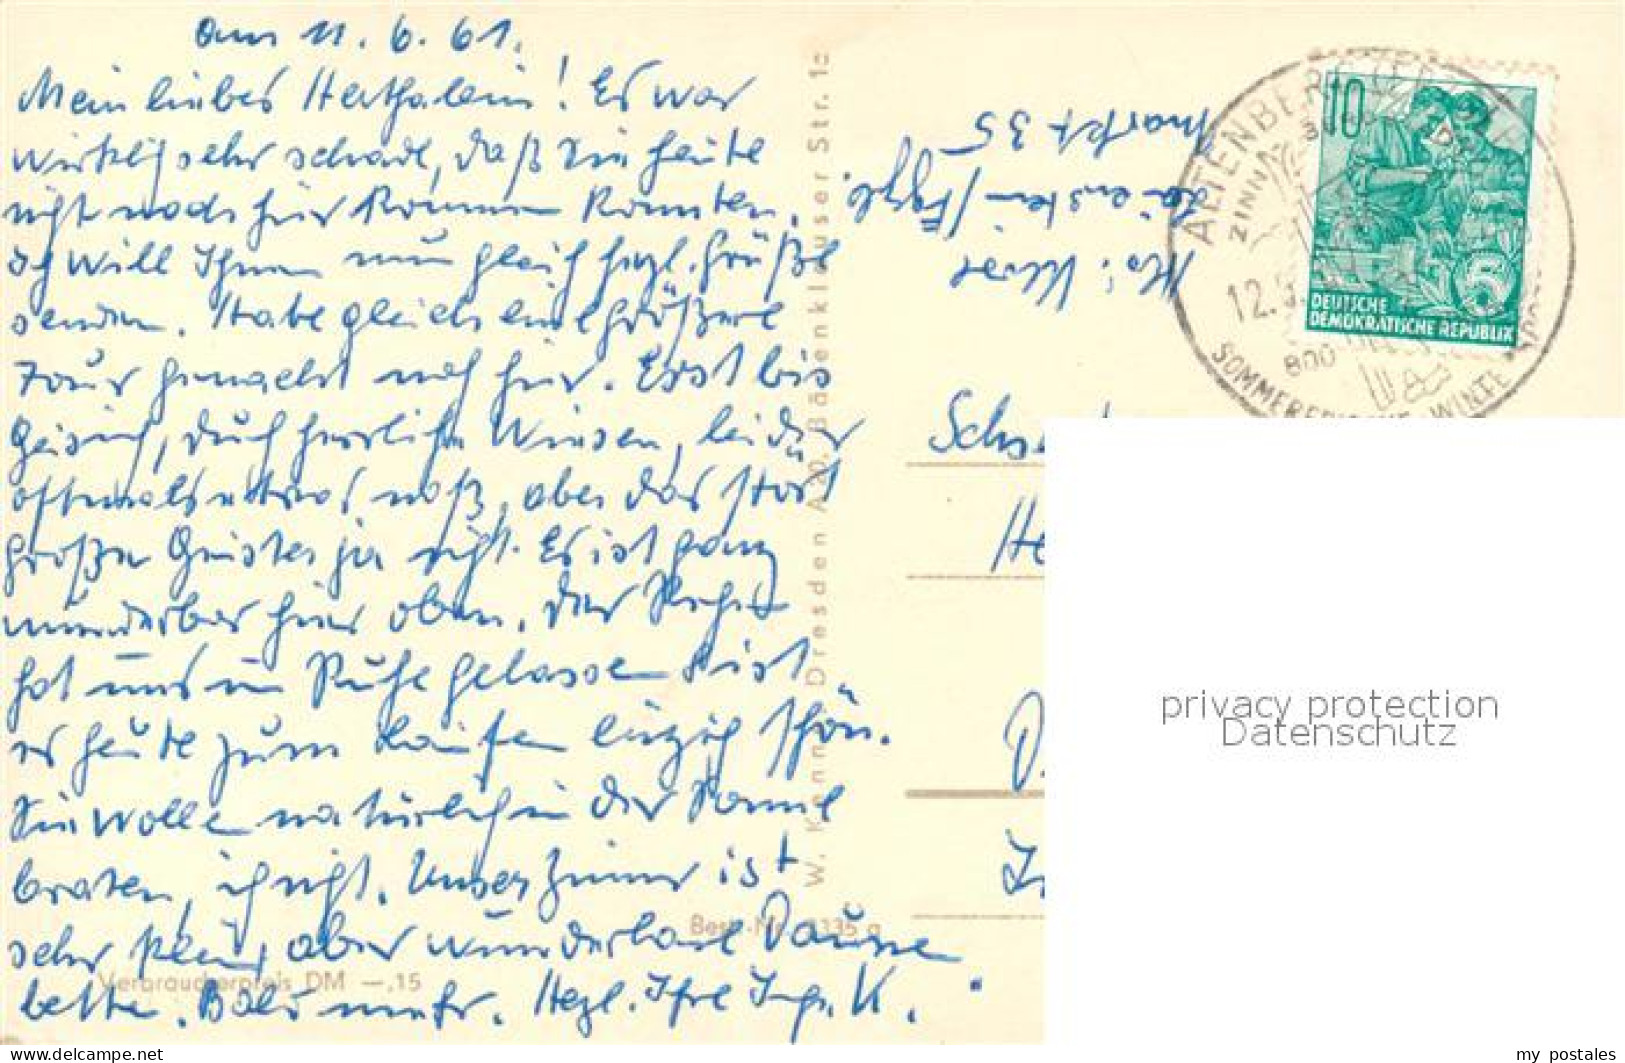 am 11.6.61.
Mein liebes Herthalein! Es war
wirklich sehr schade, daß Sie heute
nicht nach hier kommen konnten.
Ich will Ihnen nun gleich herzl. Grüße
senden. Habe gleich eine größere
Tour gemacht nach hier. Erst bis
Geising, durch herrliche Wiesen, leider
oftmals etwas naß, aber das stört
große Geister ja nicht. Es ist ganz
wunderbar hier oben. Der Regen
hat uns in Ruhe gelassen & ist
es heute zum Laufen einzig schön.
Sie wollen natürlich in der Sonne
braten, ich nicht. Unser Zimmer ist
sehr klein, aber wunderbare Daunen
betten. Bald mehr. Herzl. Ihre Inge K.
W. Kenn Dresden A 20, Bärenklauser Str. 1c
Best.-Nr. 335 a
Verbraucherpreis DM —,15
Markt 35
Lauenstein/Erzgb.
ALTENBERG
ZINN
12.
800
SOMMERFRISCHE WINTE
10
5
DEUTSCHE
DEMOKRATISCHE REPUBLIK
Sch
He
D.
privacy protection
Datenschutz
www.delcampe.net
my_postales